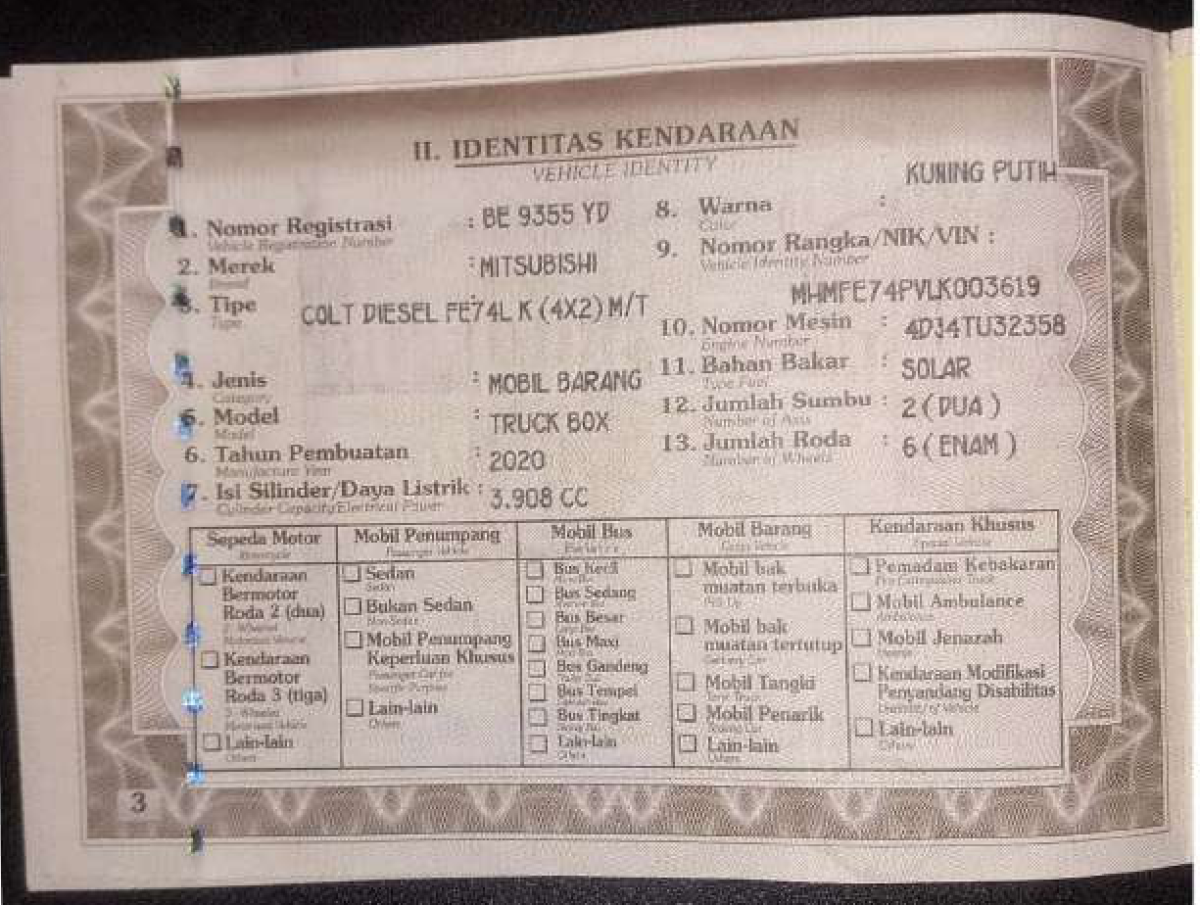 II. IDENTITAS KENDARAAN
VEHICLE IDENTITY
1. Nomor Registrasi : BE 9355 YD
Vehicle Registration Number
2. Merek : MITSUBISHI
Brand
3. Tipe : COLT DIESEL FE74L K (4X2) M/T
Type
4. Jenis : MOBIL BARANG
Category
5. Model : TRUCK BOX
Model
6. Tahun Pembuatan : 2020
Manufacture Year
7. Isi Silinder/Daya Listrik : 3.908 CC
Cylinder Capacity/Electrical Power
8. Warna : KUNING PUTIH
Color
9. Nomor Rangka/NIK/VIN :
Vehicle Identity Number
MHMFE74PVLK003619
10. Nomor Mesin : 4D34TU32358
Engine Number
11. Bahan Bakar : SOLAR
Type Fuel
12. Jumlah Sumbu : 2 ( DUA )
Number of Axis
13. Jumlah Roda : 6 ( ENAM )
Number of Wheels
Sepeda Motor
Motorcycle
Kendaraan
Bermotor
Roda 2 (dua)
Kendaraan
Bermotor
Roda 3 (tiga)
Lain-lain
Others
Mobil Penumpang
Passenger Vehicle
Sedan
Sedan
Bukan Sedan
Non-Sedan
Mobil Penumpang
Keperluan Khusus
Passenger Car for
Specific Purpose
Lain-lain
Others
Mobil Bus
Bus Kecil
Bus Sedang
Bus Besar
Bus Maxi
Bus Gandeng
Bus Tempel
Bus Tingkat
Lain-lain
Others
Mobil Barang
Mobil bak
muatan terbuka
Pick Up
Mobil bak
muatan tertutup
Mobil Tangki
Mobil Penarik
Lain-lain
Others
Kendaraan Khusus
Special Vehicle
Pemadam Kebakaran
Mobil Ambulance
Ambulance
Mobil Jenazah
Kendaraan Modifikasi
Penyandang Disabilitas
Lain-lain
Others
3